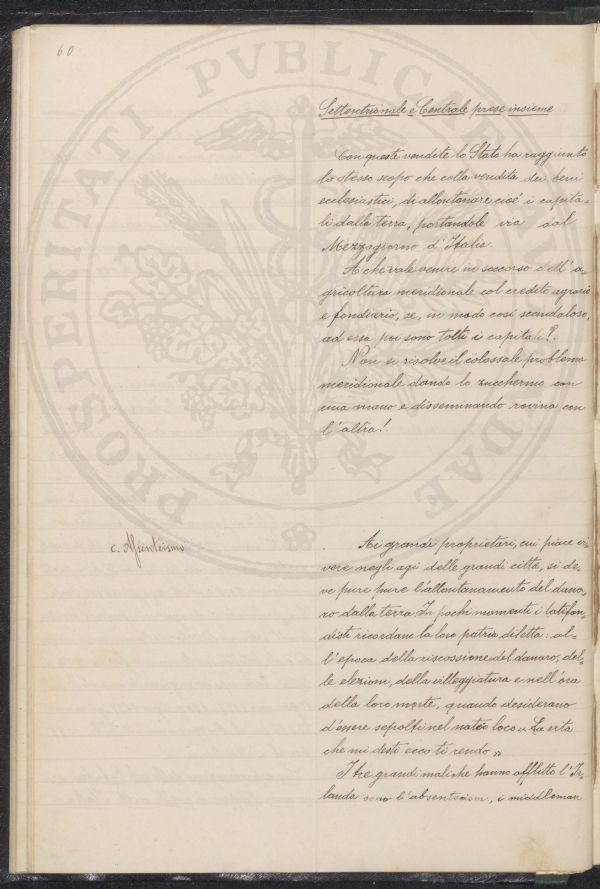 60
Settentrionale e Centrale prese insieme
Con queste vendite lo Stato ha raggiunto
lo stesso scopo che colla vendita dei beni
ecclesiastici, di allontanare cioè i capita=
li dalla terra, portandole via dal
Mezzogiorno d'Italia.
A che vale venire in soccorso dell'a=
gricoltura meridionale col credito agrario
e fondiario, se, in modo così scandaloso,
ad essa poi sono tolti i capitali?
Non si risolve il colossale problema
meridionale dando lo zuccherino con
una mano e disseminando rovina con
l'altra!
c. Assenteismo
Ai grandi proprietari, cui piace vi=
vere negli agi delle grandi città, si de=
ve pure pure l'allontanamento del dana=
ro dalla terra. In pochi momenti i latifon=
disti ricordano la loro patria diletta: al=
l'epoca della riscossione del danaro, del=
le elezioni, della villeggiatura e nell'ora
della loro morte, quando desiderano
d'essere sepolti nel natio loco "La vita
che mi desti ecco ti rendo"
I tre grandi mali che hanno afflitto l'Ir=
landa sono l'absenteism, i middleman
PROSPERITATI PVBLICAE